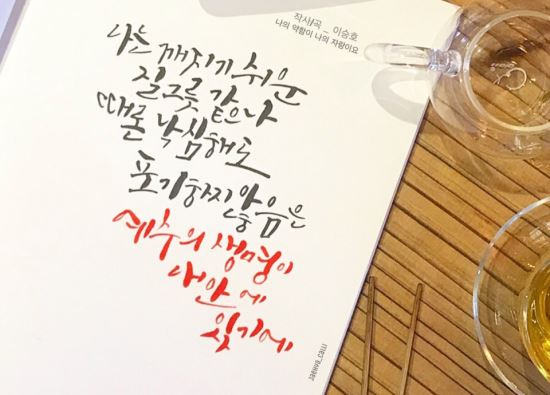 작사/곡 _ 이승호
나의 약함이 나의 자랑이요
나는 깨지기 쉬운
질그릇 같으나
때론 낙심해도
포기하지 않음은
예수의 생명이
내 안에
있기에
Jaewra_Calli